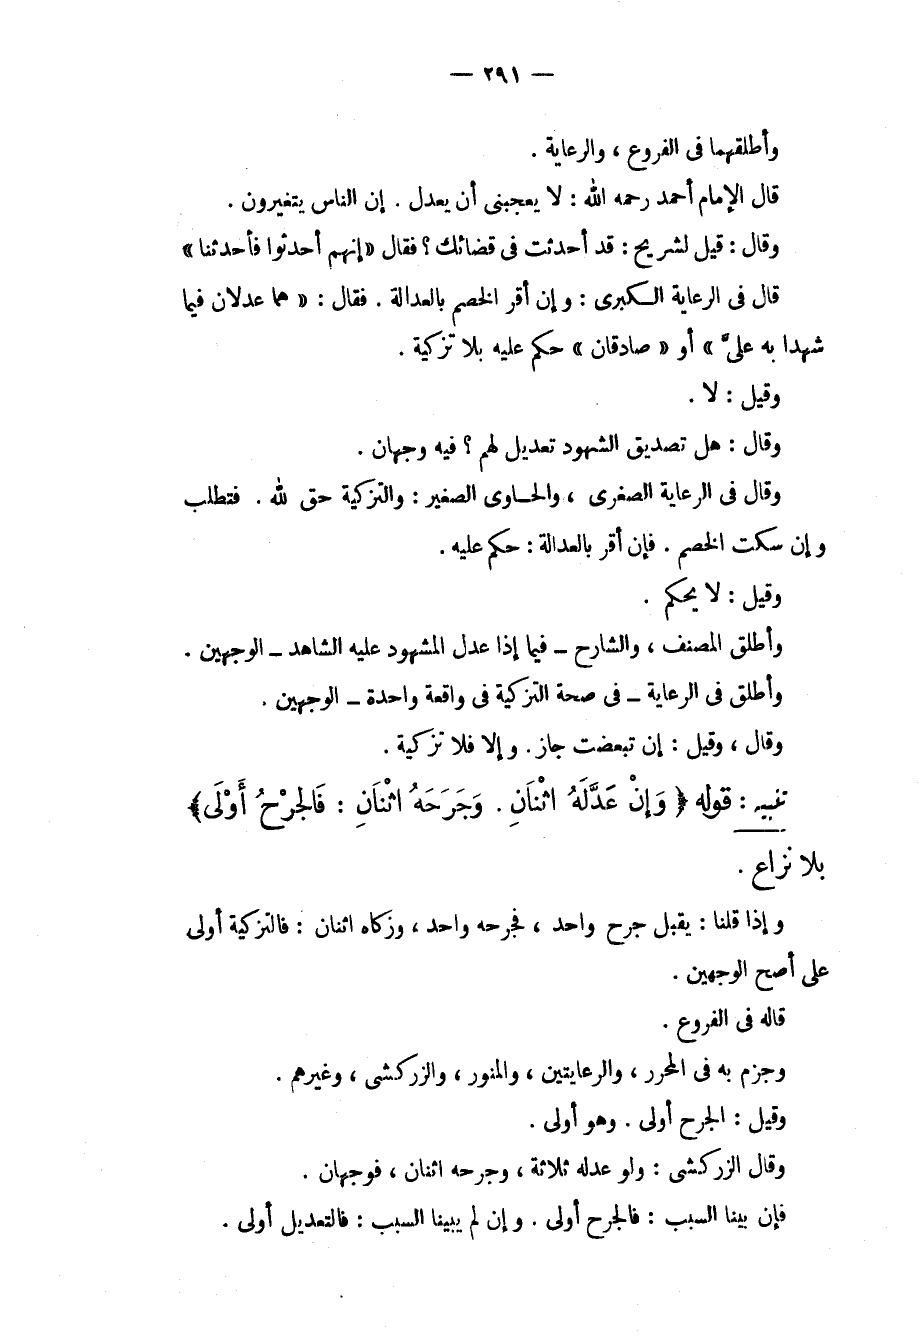 — ٢٩١ —
وأطلقهما فى الفروع ، والرعاية .
قال الإمام أحمد رحمه الله : لا يعجبنى أن يعدل . إن الناس يتغيرون .
وقال : قيل لشريح : قد أحدثت فى قضائك ؟ فقال «إنهم أحدثوا فأحدثنا»
قال فى الرعاية الكبرى : وإن أقر الخصم بالعدالة . فقال : « هما عدلان فيما
شهدا به علىَّ » أو « صادقان » حكم عليه بلا تزكية .
وقيل : لا .
وقال : هل تصديق الشهود تعديل لهم ؟ فيه وجهان .
وقال فى الرعاية الصغرى ، والحاوى الصغير : والتزكية حق لله . فتطلب
وإن سكت الخصم . فإن أقر بالعدالة : حكم عليه .
وقيل : لا يحكم .
وأطلق المصنف ، والشارح – فيما إذا عدل المشهود عليه الشاهد – الوجهين .
وأطلق فى الرعاية – فى صحة التزكية فى واقعة واحدة – الوجهين .
وقال ، وقيل : إن تبعضت جاز . وإلا فلا تزكية .
تنبيه : قوله ﴿ وَإِنْ عَدَّلَهُ اثْنَانِ . وَجَرَحَهُ اثْنَانِ : فَالْجَرْحُ أَوْلَى﴾
بلا نزاع .
وإذا قلنا : يقبل جرح واحد ، فجرحه واحد ، وزكاه اثنان : فالتزكية أولى
على أصح الوجهين .
قاله فى الفروع .
وجزم به فى المحرر ، والرعايتين ، والمنور ، والزركشى ، وغيرهم .
وقيل : الجرح أولى . وهو أولى .
وقال الزركشى : ولو عدله ثلاثة ، وجرحه اثنان ، فوجهان .
فإن بينا السبب : فالجرح أولى . وإن لم يبينا السبب : فالتعديل أولى .